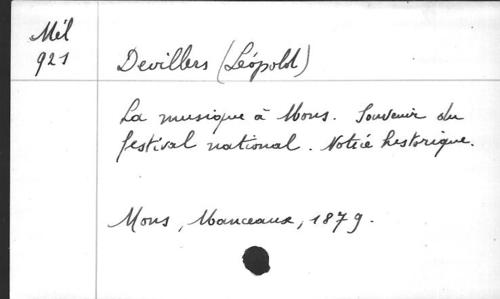 Mél
921
Devillers (Léopold)
La musique à Mons. Souvenir du
festival national. Notice historique.
Mons, Manceaux, 1879.